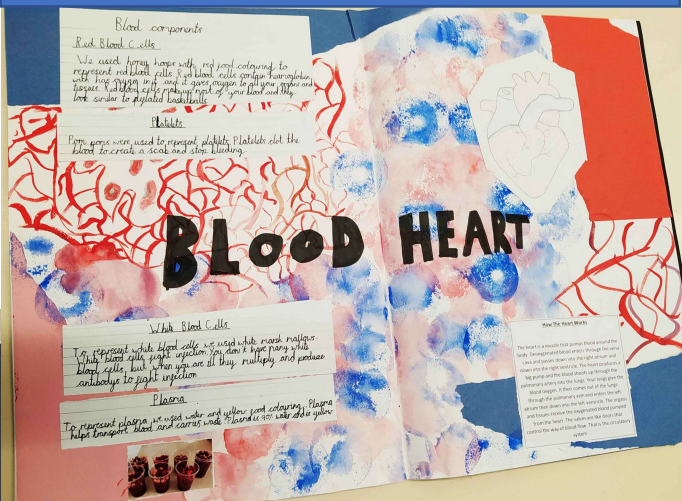 Blood components
Red Blood Cells
We used honey hoops with red food colouring to
represent red blood cells. Red blood cells contain haemoglobin
with has oxygen in it and it gives oxygen to all your organs and
tissues. Red blood cells makeup most of your blood and they
look similar to
Platelets
Pom poms were used to represent platelets. Platelets clot the
blood to create a scab and stop bleeding.
BLOOD HEART
White Blood Cells
To represent white blood cells we used white marsh mallows.
White blood cells fight injection. You don't have many white
blood cells, but when you are ill they multiply and produce
antibodys to fight injection
Plasma
To represent plasma we used water and yellow food colouring. Plasma
helps transport blood and carries waste. Plasma is 90% water and is yellow
How The Heart Works
The heart is a muscle that pumps blood around the
body. Deoxygenated blood enters through the vena
cava and passes down into the right atrium and
down into the right ventricle. The heart produces a
big pump and the blood shoots up through the
pulmonary artery into the lungs. Your lungs give the
blood oxygen. It then comes out of the lungs
through the pulmonary vein and enters the left
atrium then down into the left ventricle. The organs
and tissues receive the oxygenated blood pumped
from the heart. The valves are like doors that
control the way of blood flow. That is the circulatory
system.